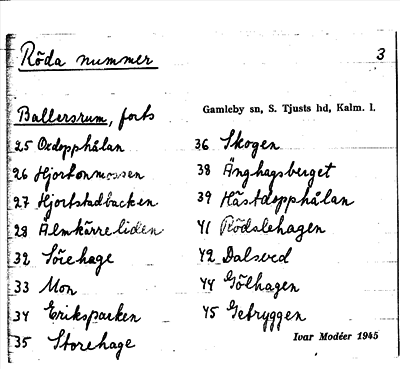 Röda nummer
3
Ballersrum, forts
Gamleby sn, S. Tjusts hd, Kalm. l.
25 Oxdopphålan
26 Hjortonmossen
27 Hjortstadbacken
28 Älmkärreliden
32 Sörehage
33 Mon
34 Eriksparken
35 Storehage
36 Skogen
38 Änghagsberget
39 Hästdopphålan
41 Rödslehagen
42 Dalsved
44 Gölhagen
45 Getryggen
Ivar Modéer 1945